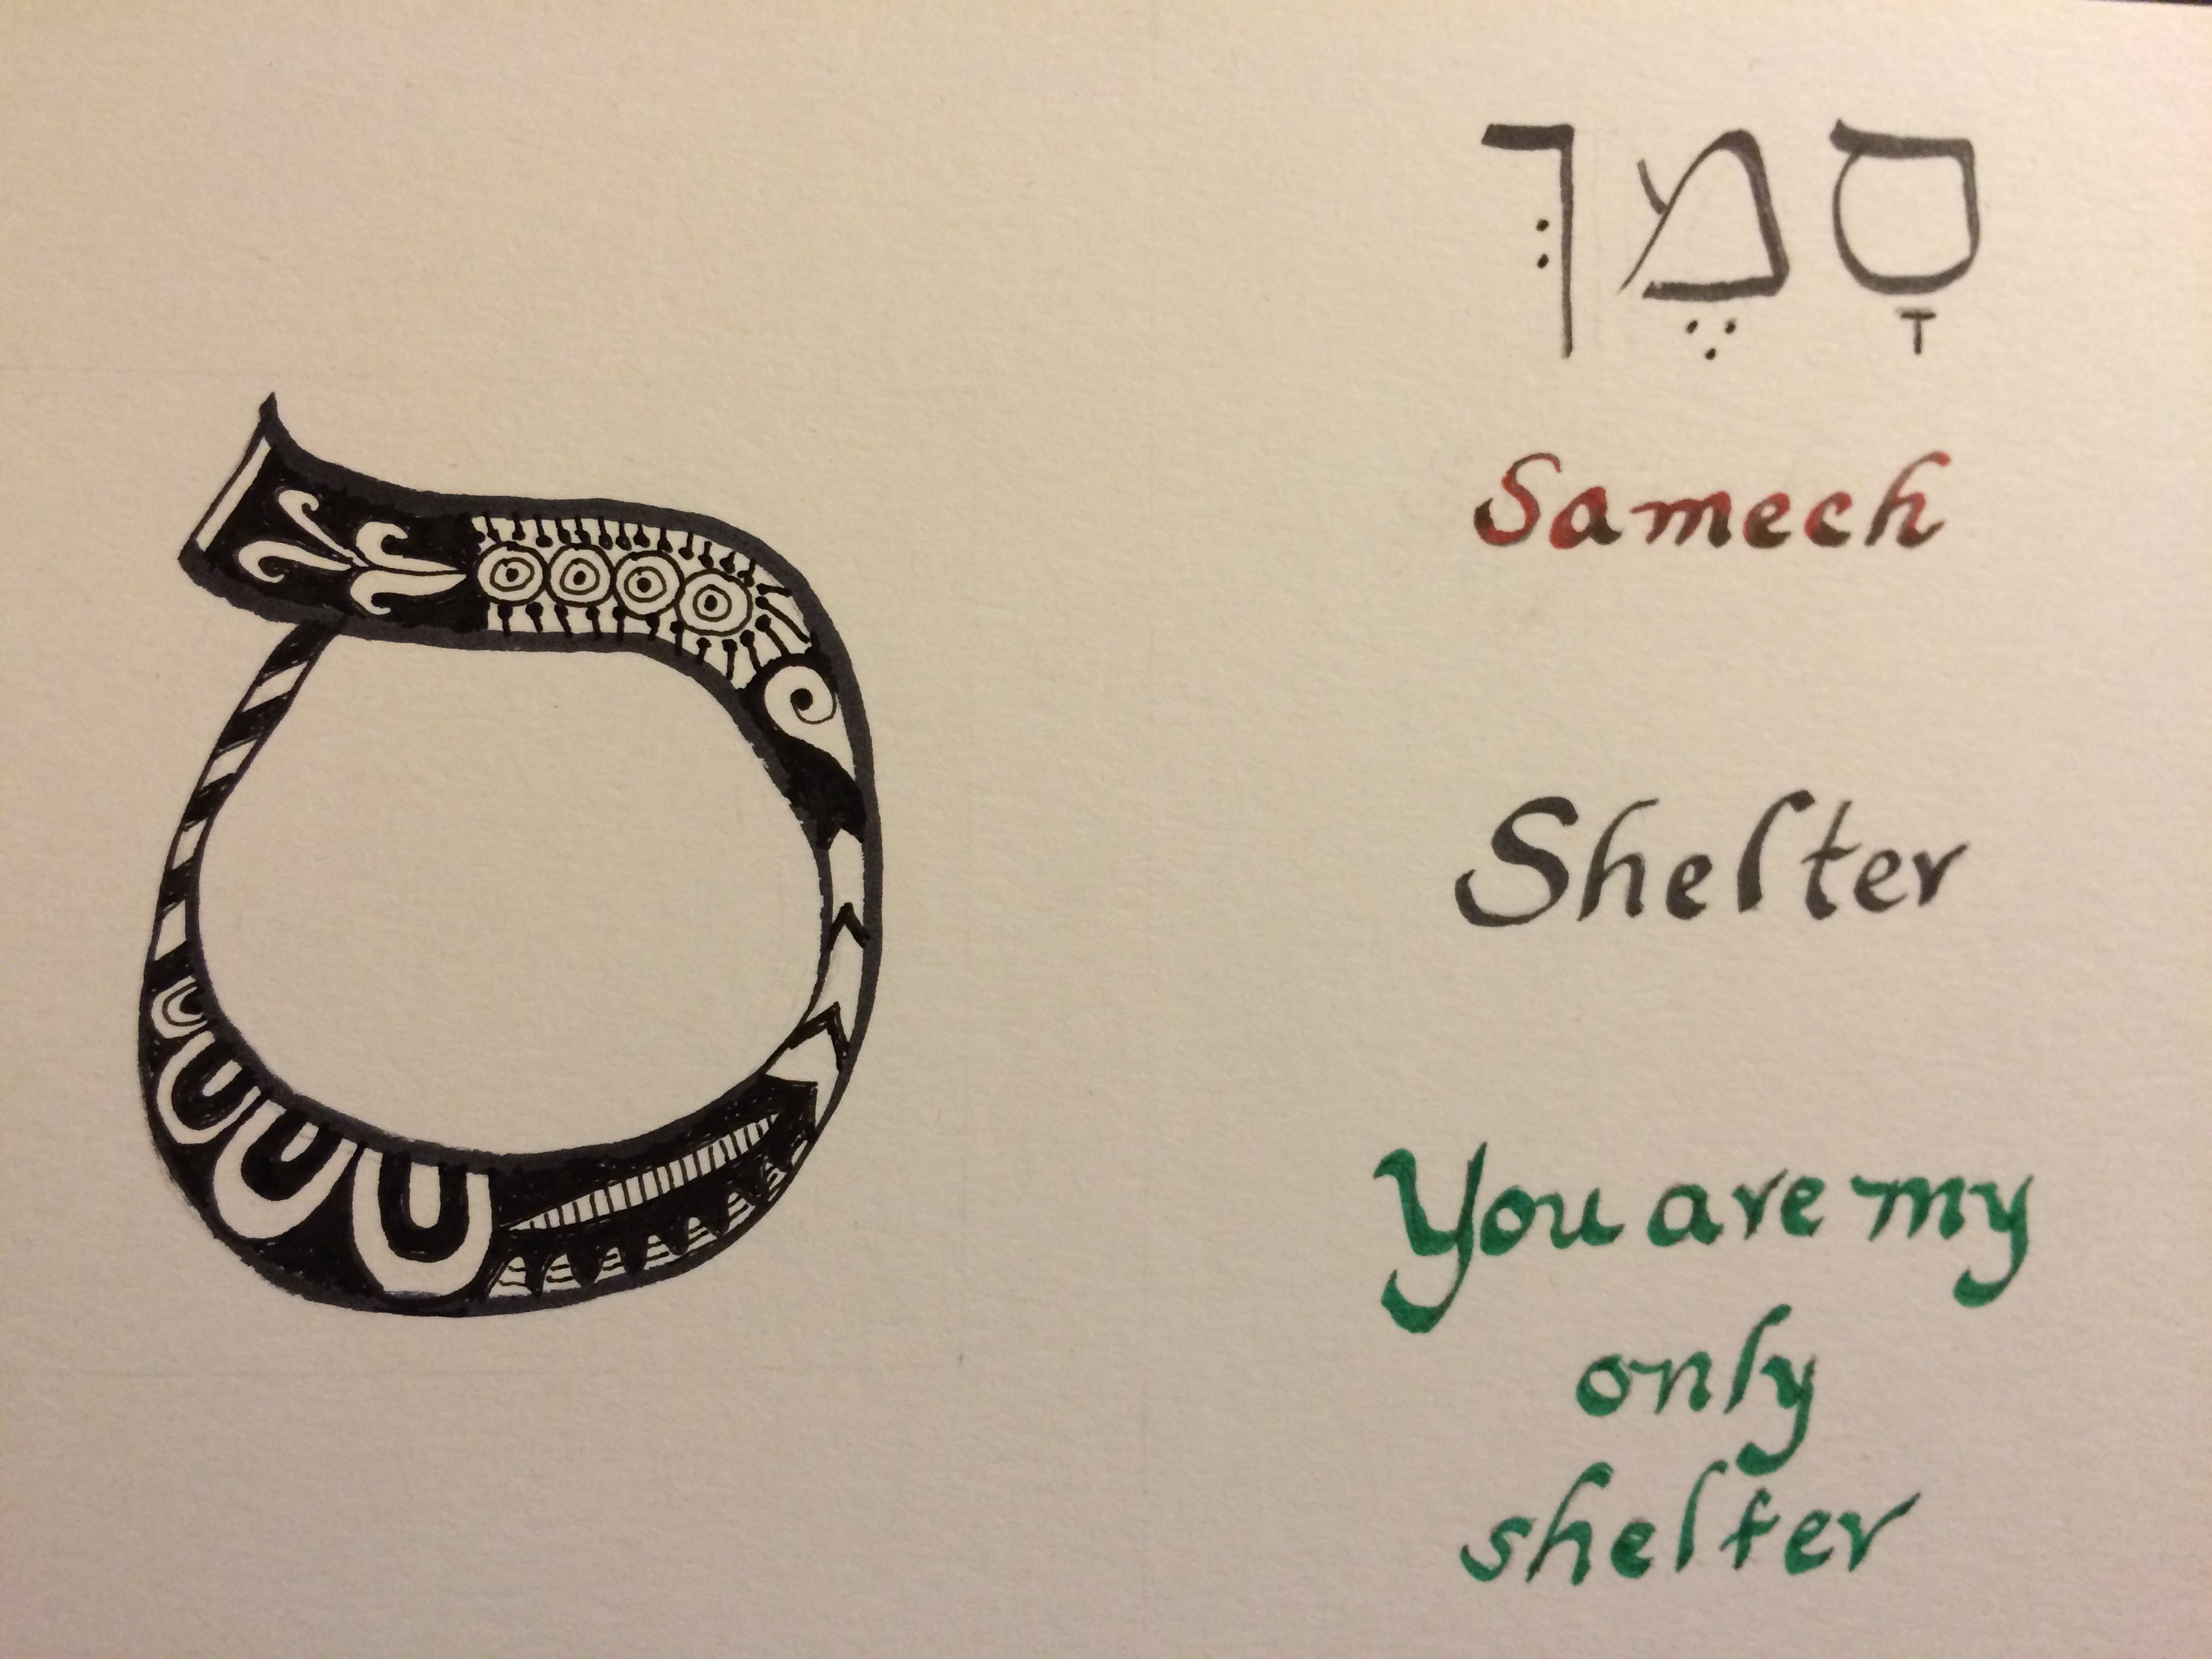 סָמֶךְ
ס
Samech
Shelter
You are my
only
shelter